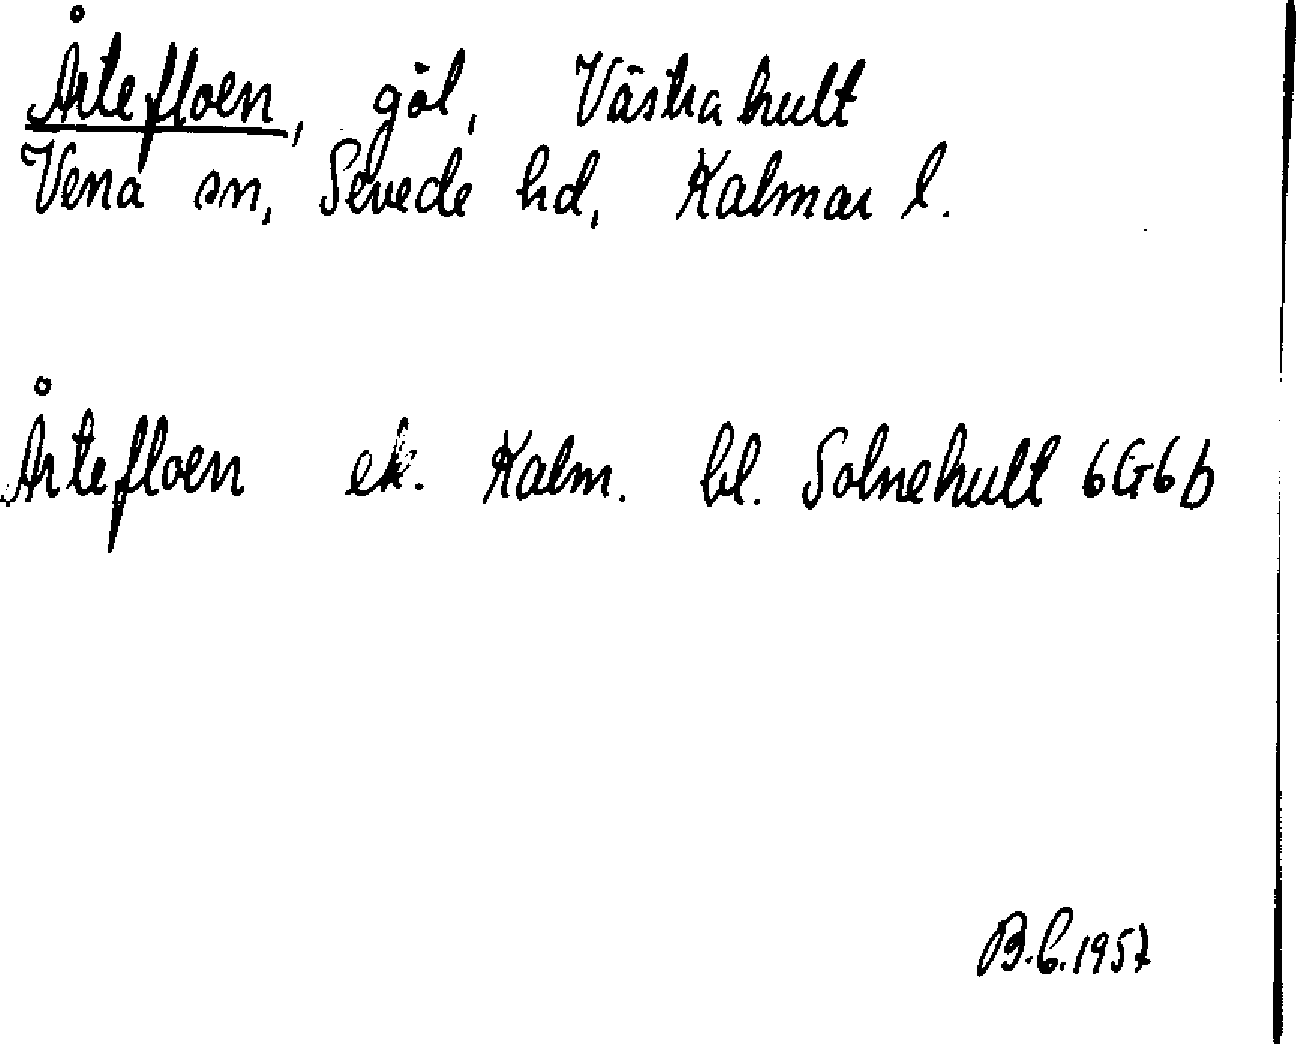 Årtefloen, göl, Västrahult
Vena sn, Sevede hd, Kalmar l.
Årtefloen ek. Kalm. bl. Solnehult 6G6b
B.C. 1957